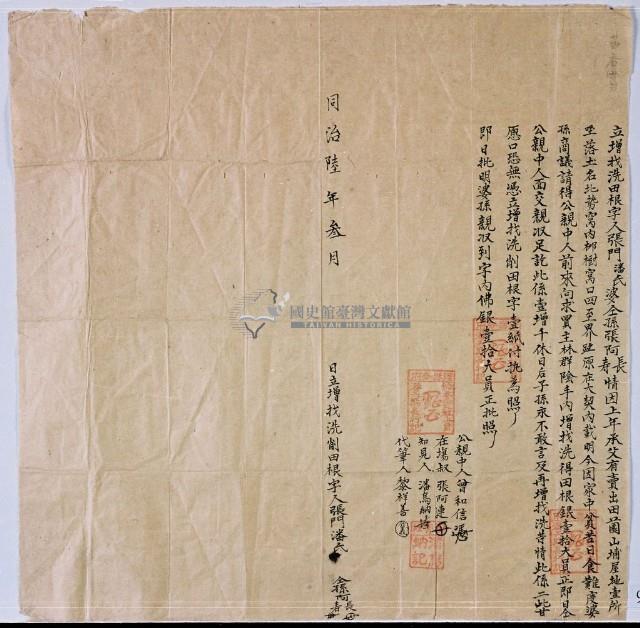 立增找洗田根字人張門潘氏婆仝孫張阿長壽情因上年承父有賣出田薗山埔屋地壹所
坐落土名北勢窩內柳樹窩口四至界趾原在大契內載明今因家中貧苦日食難度婆
孫商議請得公親中人前來向求買主林群陞手內增找洗得田根銀壹拾大員正即日仝
公親中人面交親收足訖此係壹增千休日后子孫永不敢言及再增找洗等情此係二比甘
愿口恐無憑立增找洗削田根字壹紙付执為照
即日批明婆孫親收到字內佛銀壹拾大員正批照
公親中人曾和信
在塲叔張阿連
知見人潘烏納
代筆人黎祥善
同治陸年叁月 日立增找洗削田根字人張門潘氏
仝孫阿長壽
國史館臺灣文獻館
TAIWAN HISTORICA